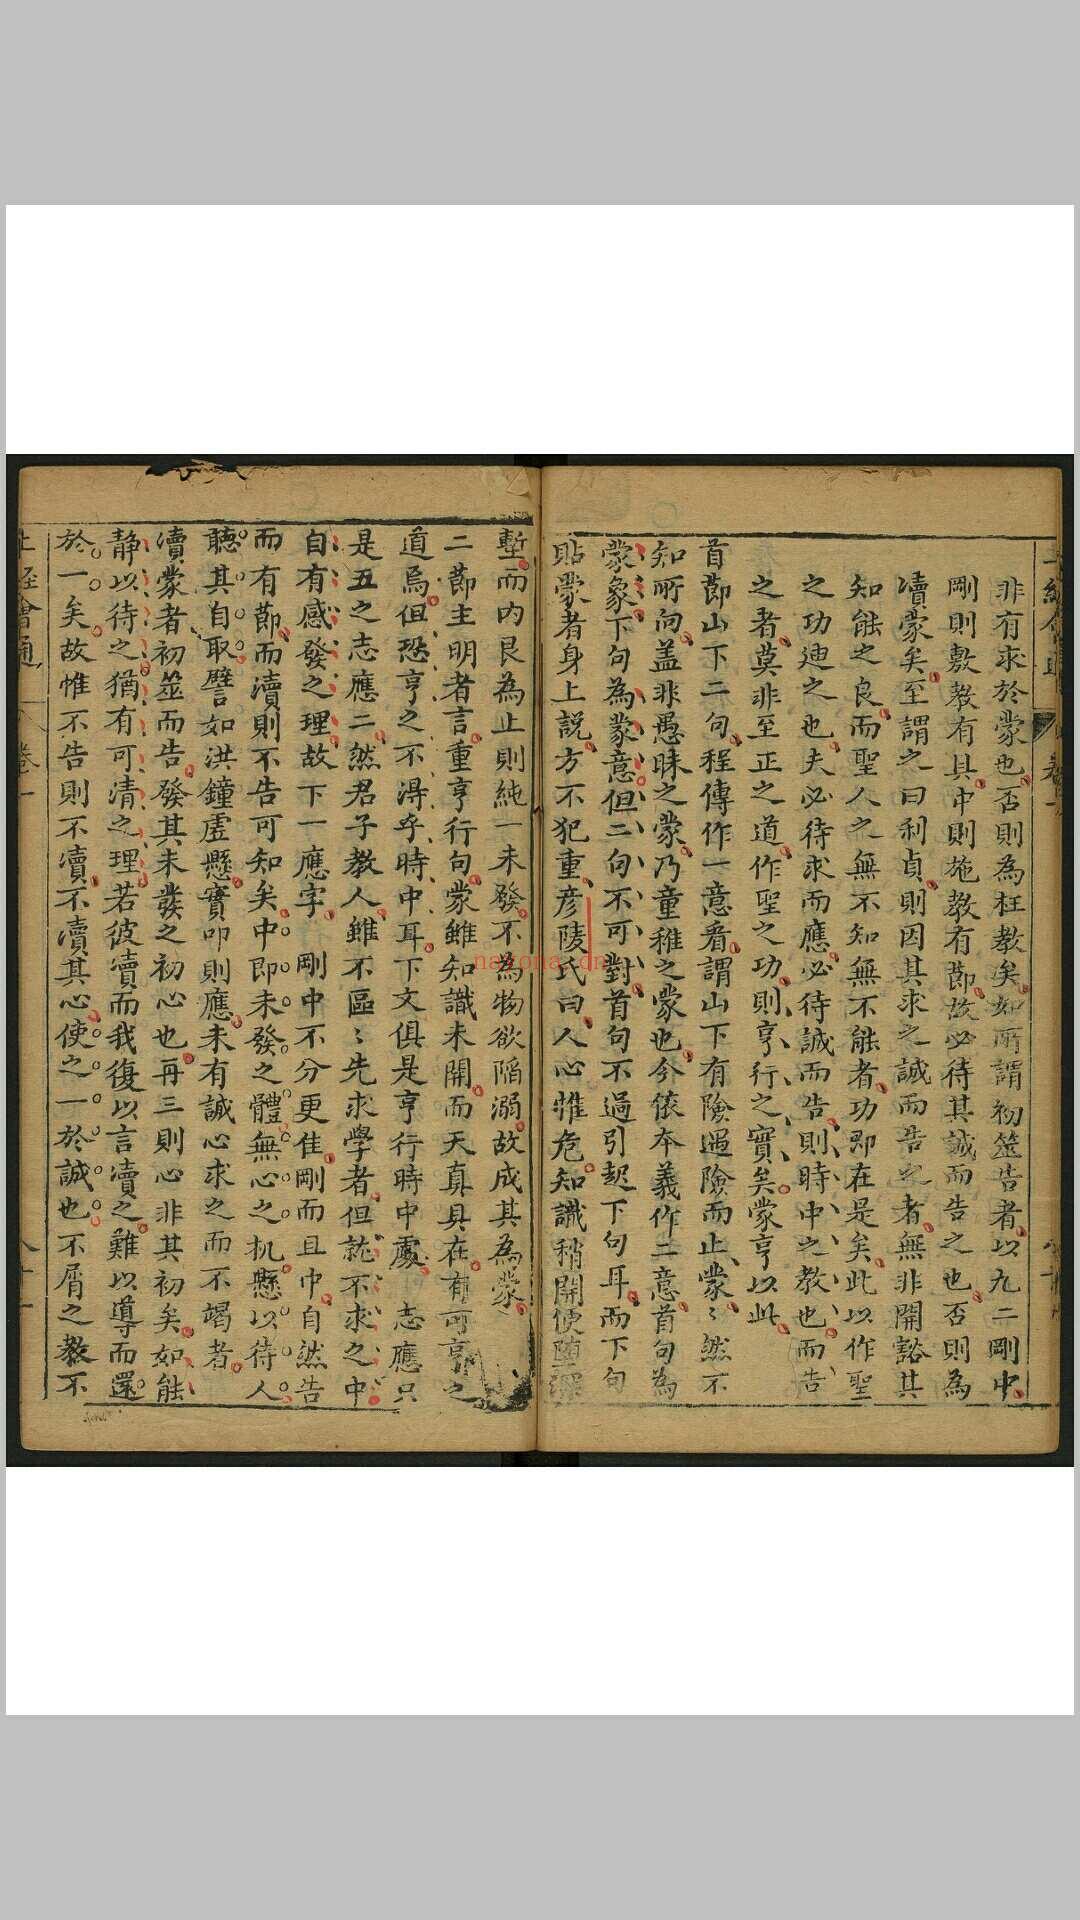 非有求於蒙也否則為枉教矣如所謂初筮告者以九二剛中
剛則敷教有具中則施教有節故必待其誠而告之也否則為
瀆蒙矣至謂之曰利貞則因其求之誠而告之者無非開豁其
知能之良而聖人之無不知無不能者功即在是矣此以作聖
之功迪之也夫必待求而應必待誠而告則時中之教也而告
之者莫非至正之道作聖之功則亨行之實矣蒙亨以此
首節山下二句程傳作一意看謂山下有險遇險而止蒙〻然不
知所向盖非愚昧之蒙乃童稚之蒙也今依本義作二意首句為
蒙象下句為蒙意但二句不可對首句不過引起下句耳而下句
貼蒙者身上説方不犯重彦陵氏曰人心惟危知識稍開便墮深
塹而内艮為止則純一未發不為物欲陷溺故成其為蒙
二節主明者言重亨行句蒙雖知識未開而天真具在有可亨之
道焉但恐亨之不得乎時中耳下文俱是亨行時中處 志應只
是五之志應二然君子教人雖不區〻先求學者但就不求之中
自有感發之理故下一應字 剛中不分更佳剛而且中自然告
而有節而瀆則不告可知矣中即未發之體無心之机懸以待人
聽其自取譬如洪鐘虛懸實叩則應未有誠心求之而不竭者
瀆蒙者初筮而告發其未發之初心也再三則心非其初矣如能
静以待之猶有可清之理若彼瀆而我復以言瀆之難以導而還
於一矣故惟不告則不瀆不瀆其心使之一於誠也不屑之教不
上經會通 卷一